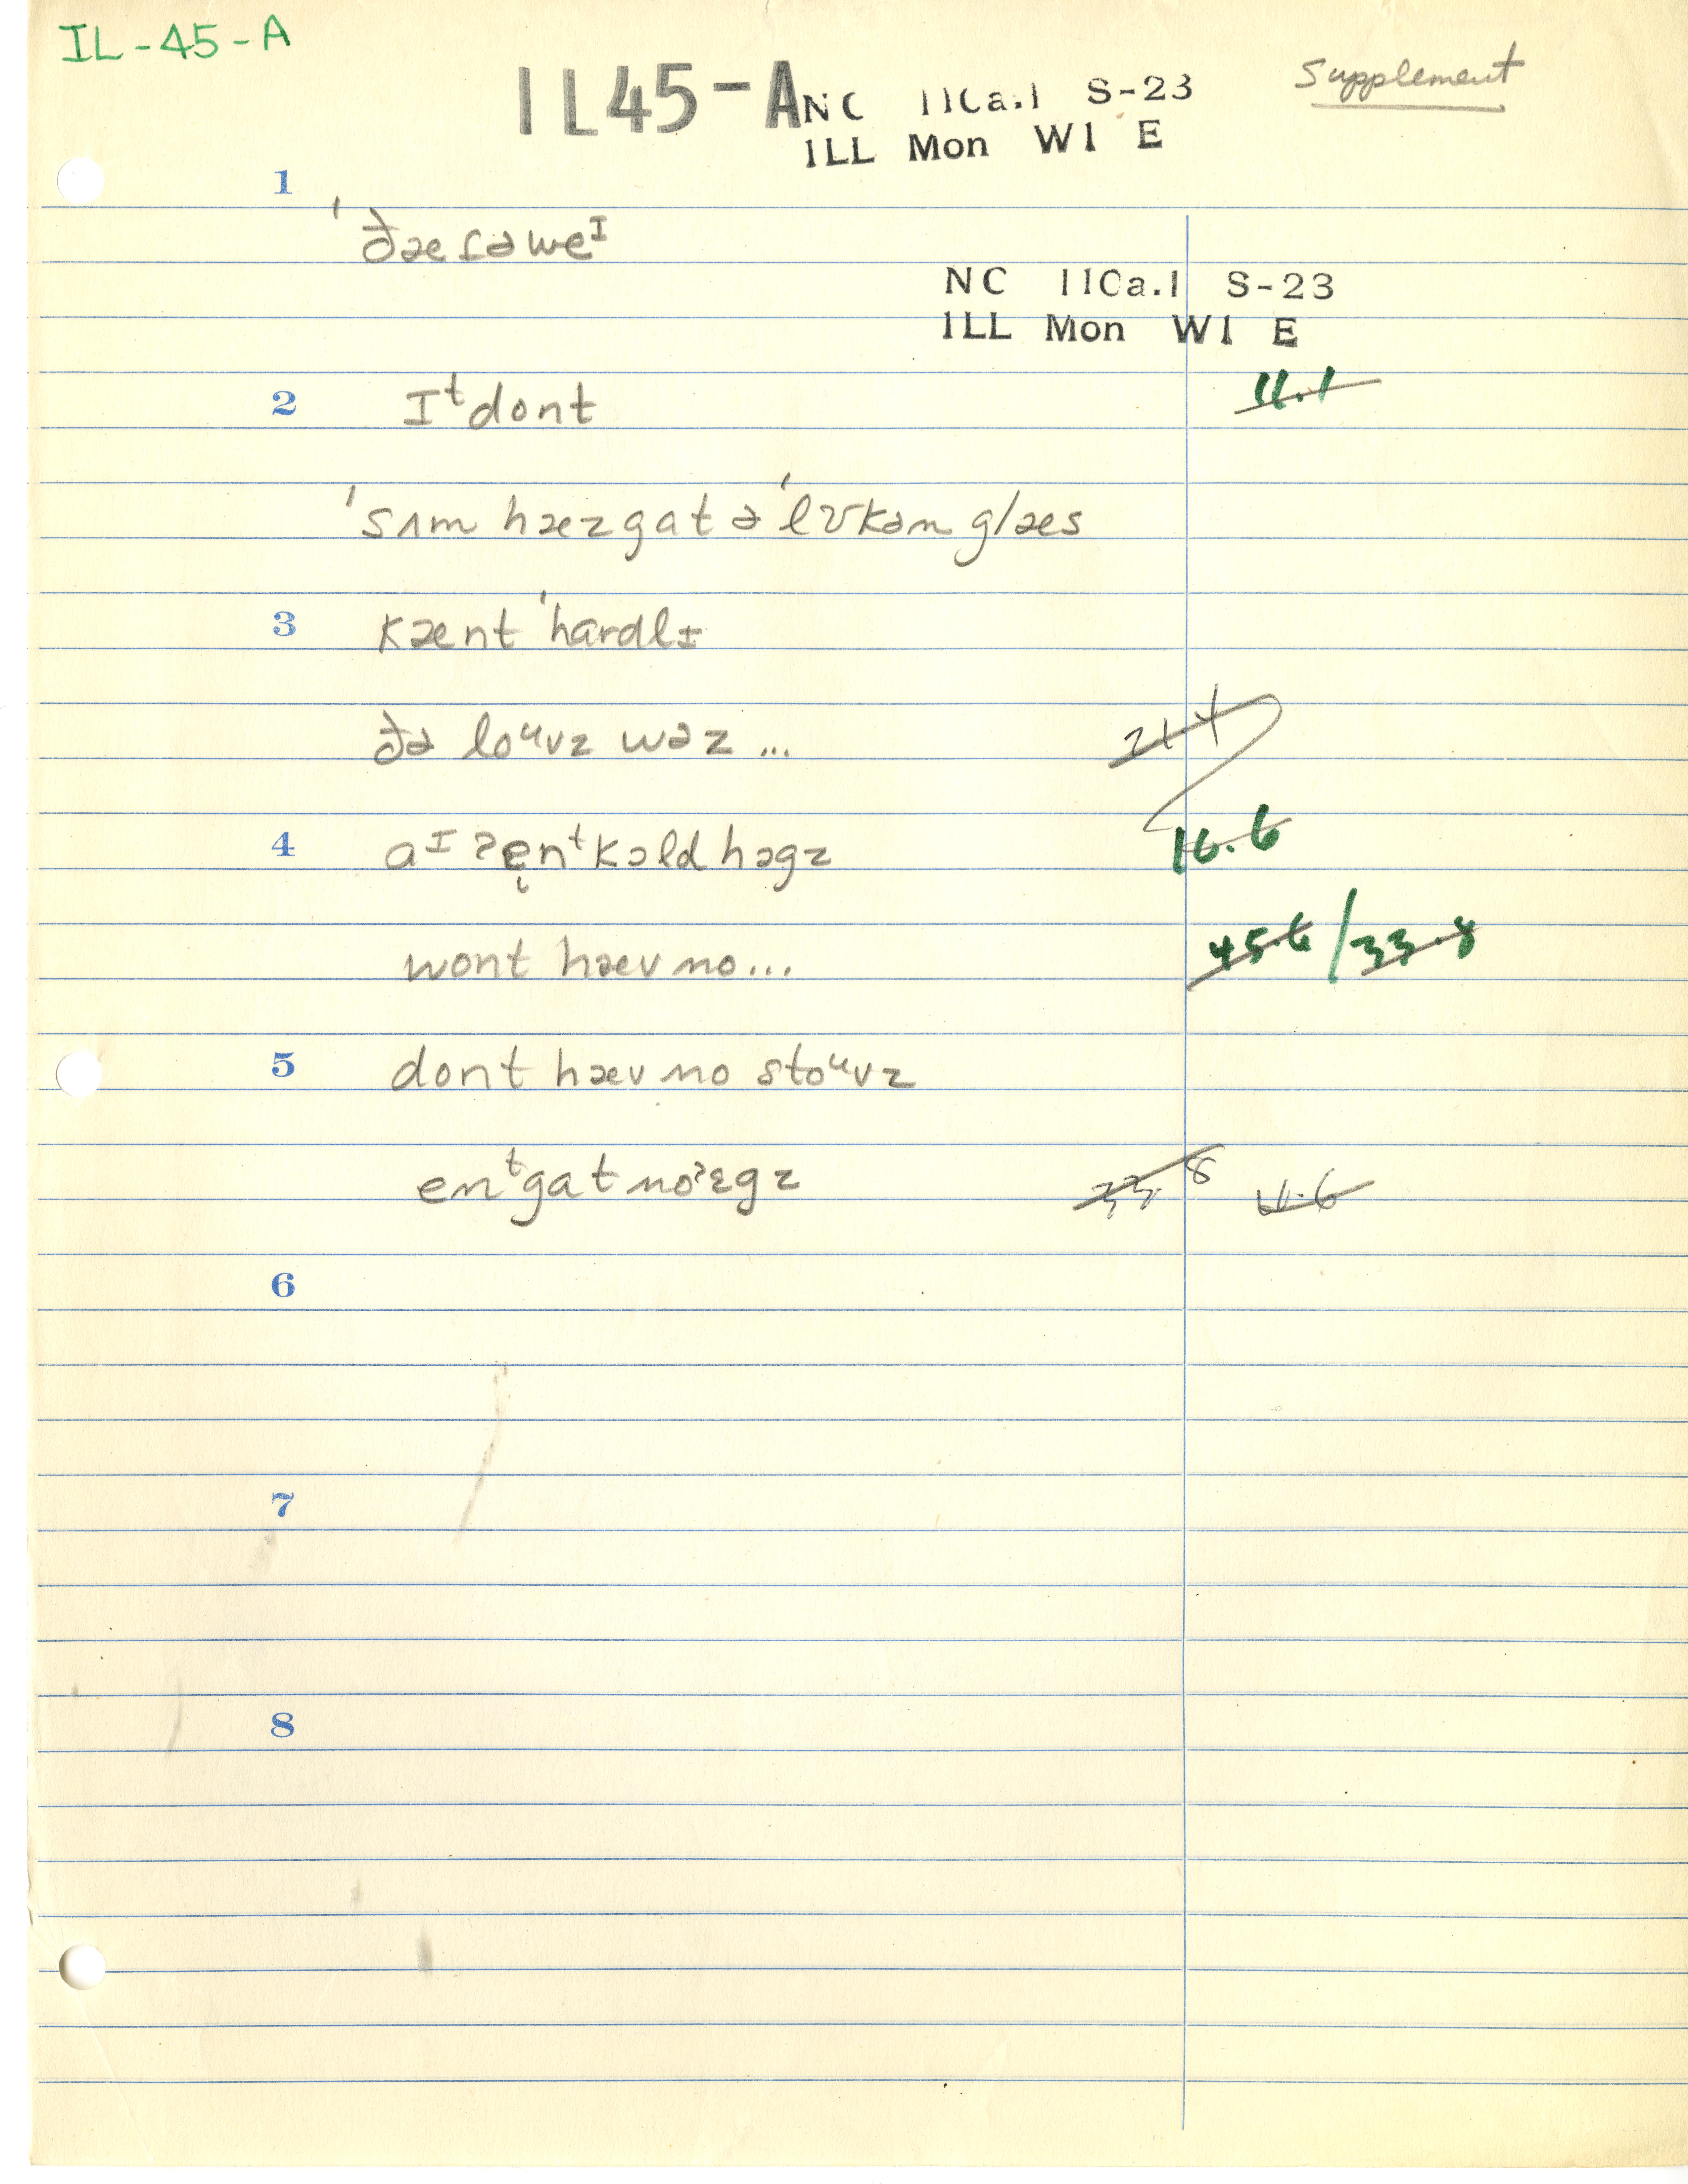 IL-45-A
IL45-A NC IICa.1 S-23 Supplement
ILL Mon W1 E
1
ˈðæɾəweᴵ
NC IICa.1 S-23
ILL Mon W1 E
2 Iᵗdont 11.1
ˈsʌm hæzgat əˈlʊkən glæs
3 kænt ˈhardlɪ
ðə loᵘvz wəz ...
4 aᴵ ʔẹnᵗkɔld hɔgz 16.6
wont hæv no... 45.6/33.8
5 dont hæv no stoᵘvz
enᵗgat noʔɛgz 33.8 16.6
6
7
8